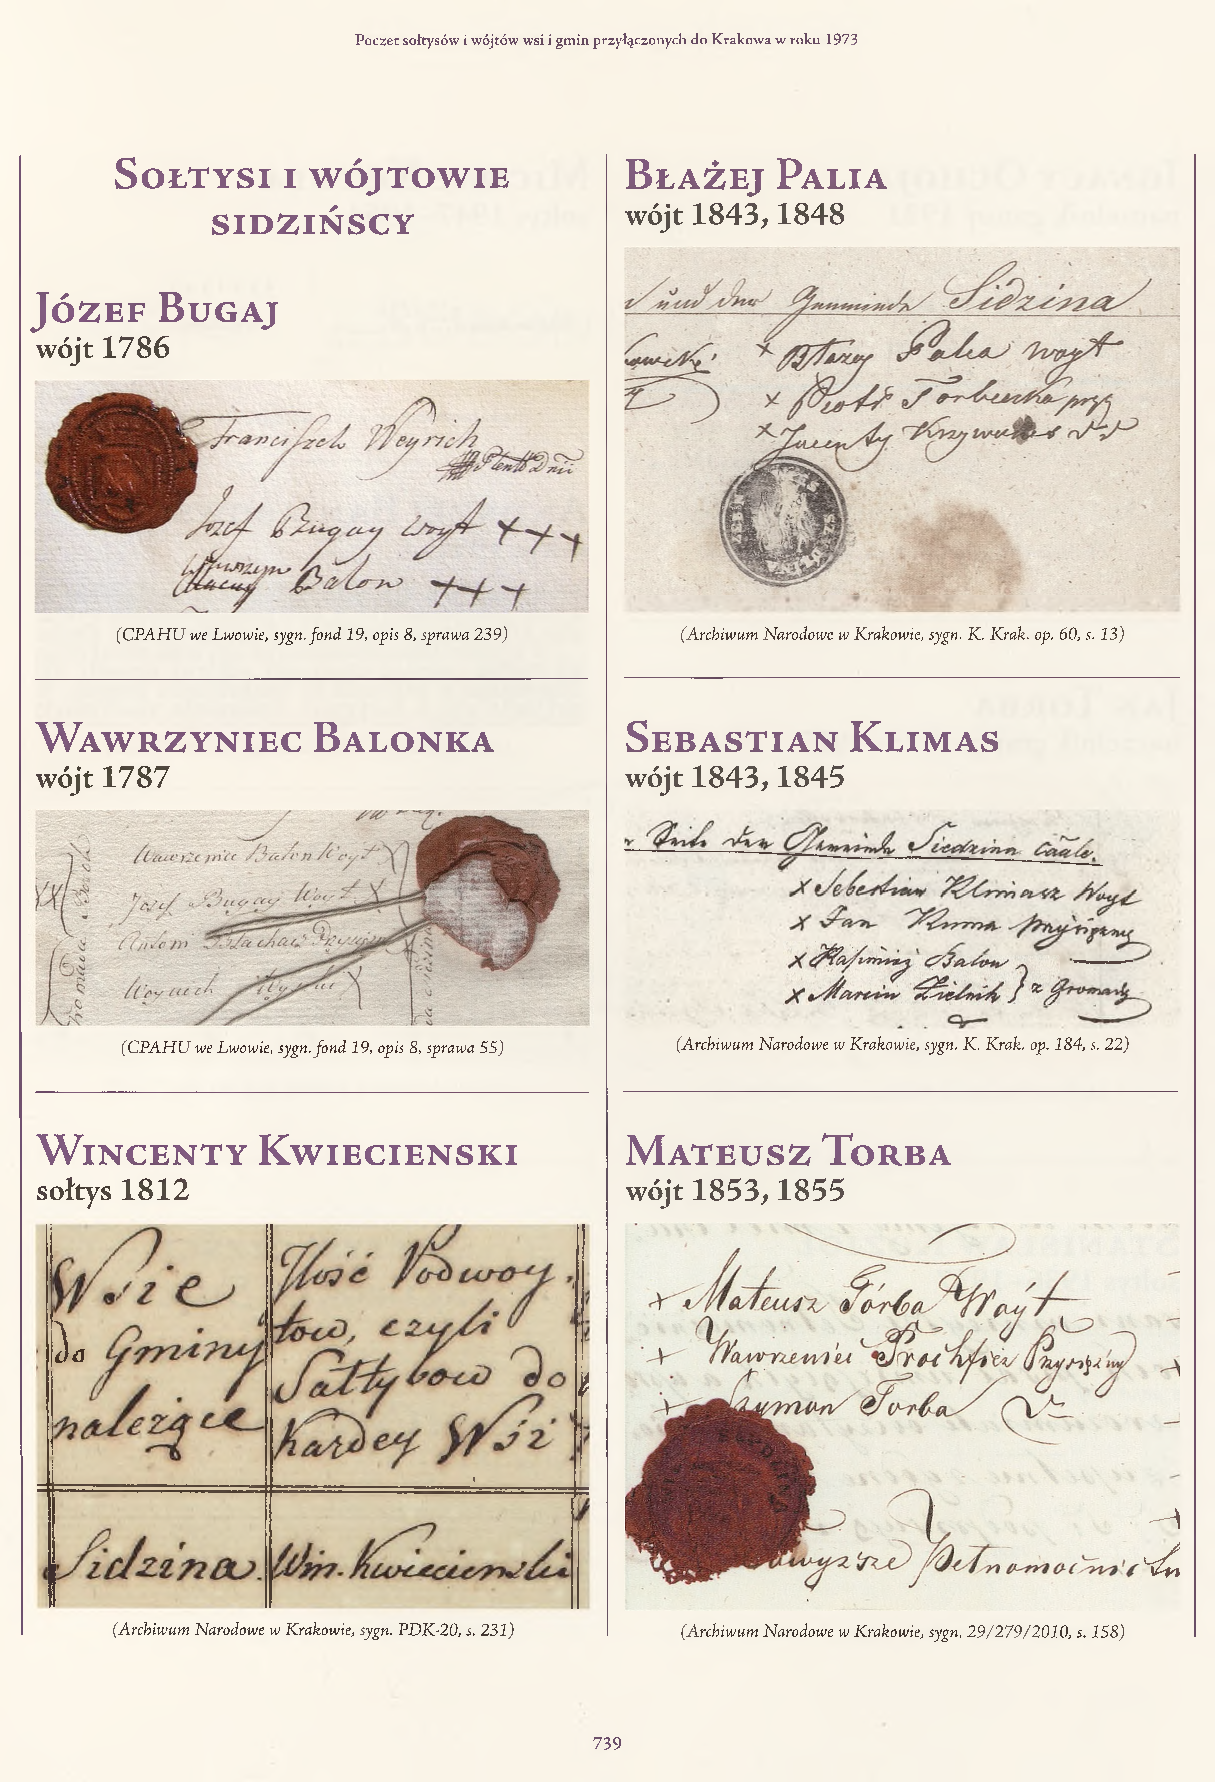 Poczet sołtysów i wójtów wsi i gmin przyłączonych do Krakowa w roku 1973
Sołtysi i wójtowie
sidzińscy
Józef Bugaj
wójt 1786
Franciszek Weyrich
Józef Bugay woyt +++
Wawrzyn
Balon +++
(CPAHU we Lwowie, sygn. fond 19, opis 8, sprawa 239)
Wawrzyniec Balonka
wójt 1787
Wawrzeniec Balon Woyt X
Jozef Bugay Woyt X
Antoni
Woyciech
(CPAHU we Lwowie, sygn. fond 19, opis 8, sprawa 55)
Wincenty Kwiecienski
sołtys 1812
Wsie
do Gminy
należące
Ilość Podwoy.
tow, czyli
Sałtysow do
każdey Wsi
Sidzina.
Win. Kwiecienski
(Archiwum Narodowe w Krakowie, sygn. PDK-20, s. 231)
Błażej Palia
wójt 1843, 1848
und der Gemeinde Sidzina
x Błazey Palia woyt
x Piotr Torbiarka przy
x Jacenty
(Archiwum Narodowe w Krakowie, sygn. K. Krak. op. 60, s. 13)
Sebastian Klimas
wójt 1843, 1845
Seite der Gemeinde Siedzina
x Sebestian Klimasz Woyt
x Jan Kuma Przysiężny
x Kasimirz Balon
x Marcin Zielnik } z Gromady
(Archiwum Narodowe w Krakowie, sygn. K. Krak. op. 184, s. 22)
Mateusz Torba
wójt 1853, 1855
+ Mateusz Torba Woyt
+ Wawrzeniec Prochficz Przysiężny
+ Szymon Torba
Pełnomocnictw
(Archiwum Narodowe w Krakowie, sygn. 29/279/2010, s. 158)
739